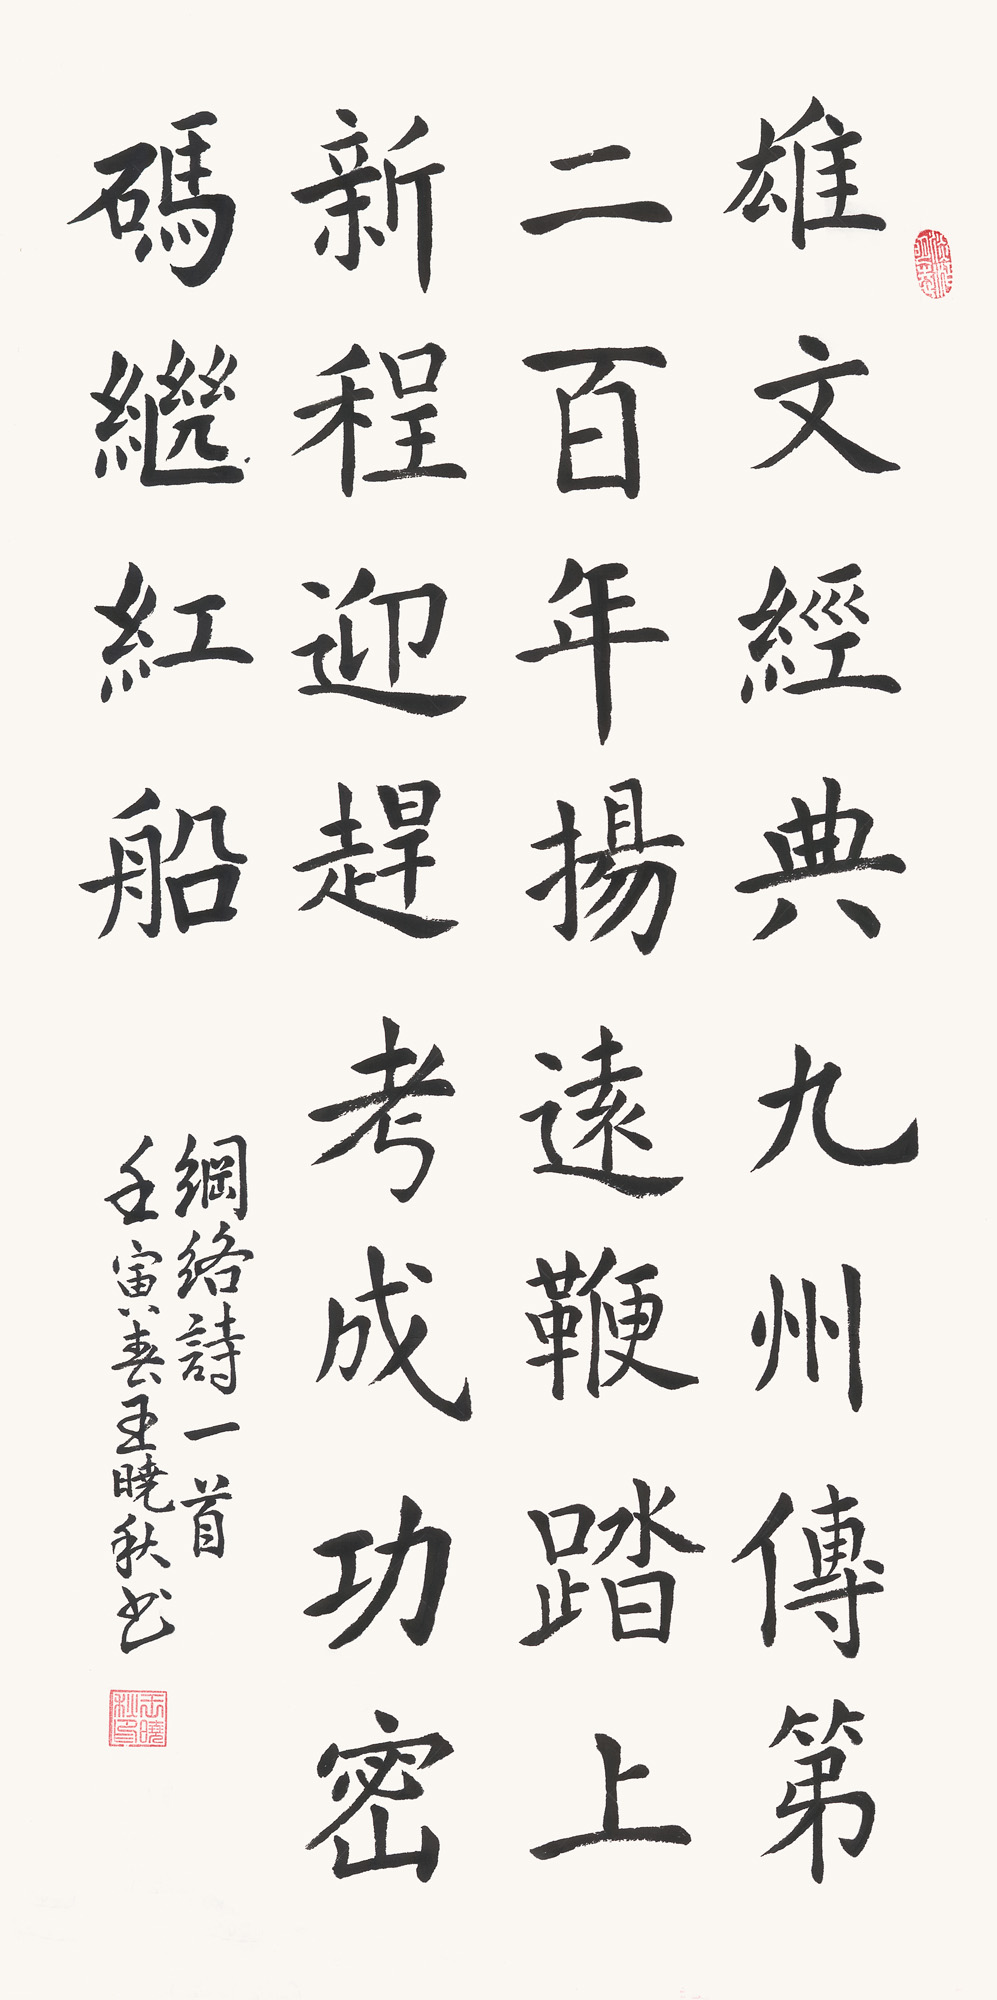 雄文經典九州傳第
二百年揚遠鞭踏上
新程迎趕考成功密
碼繼紅船
網絡詩一首
壬寅春王曉秋书